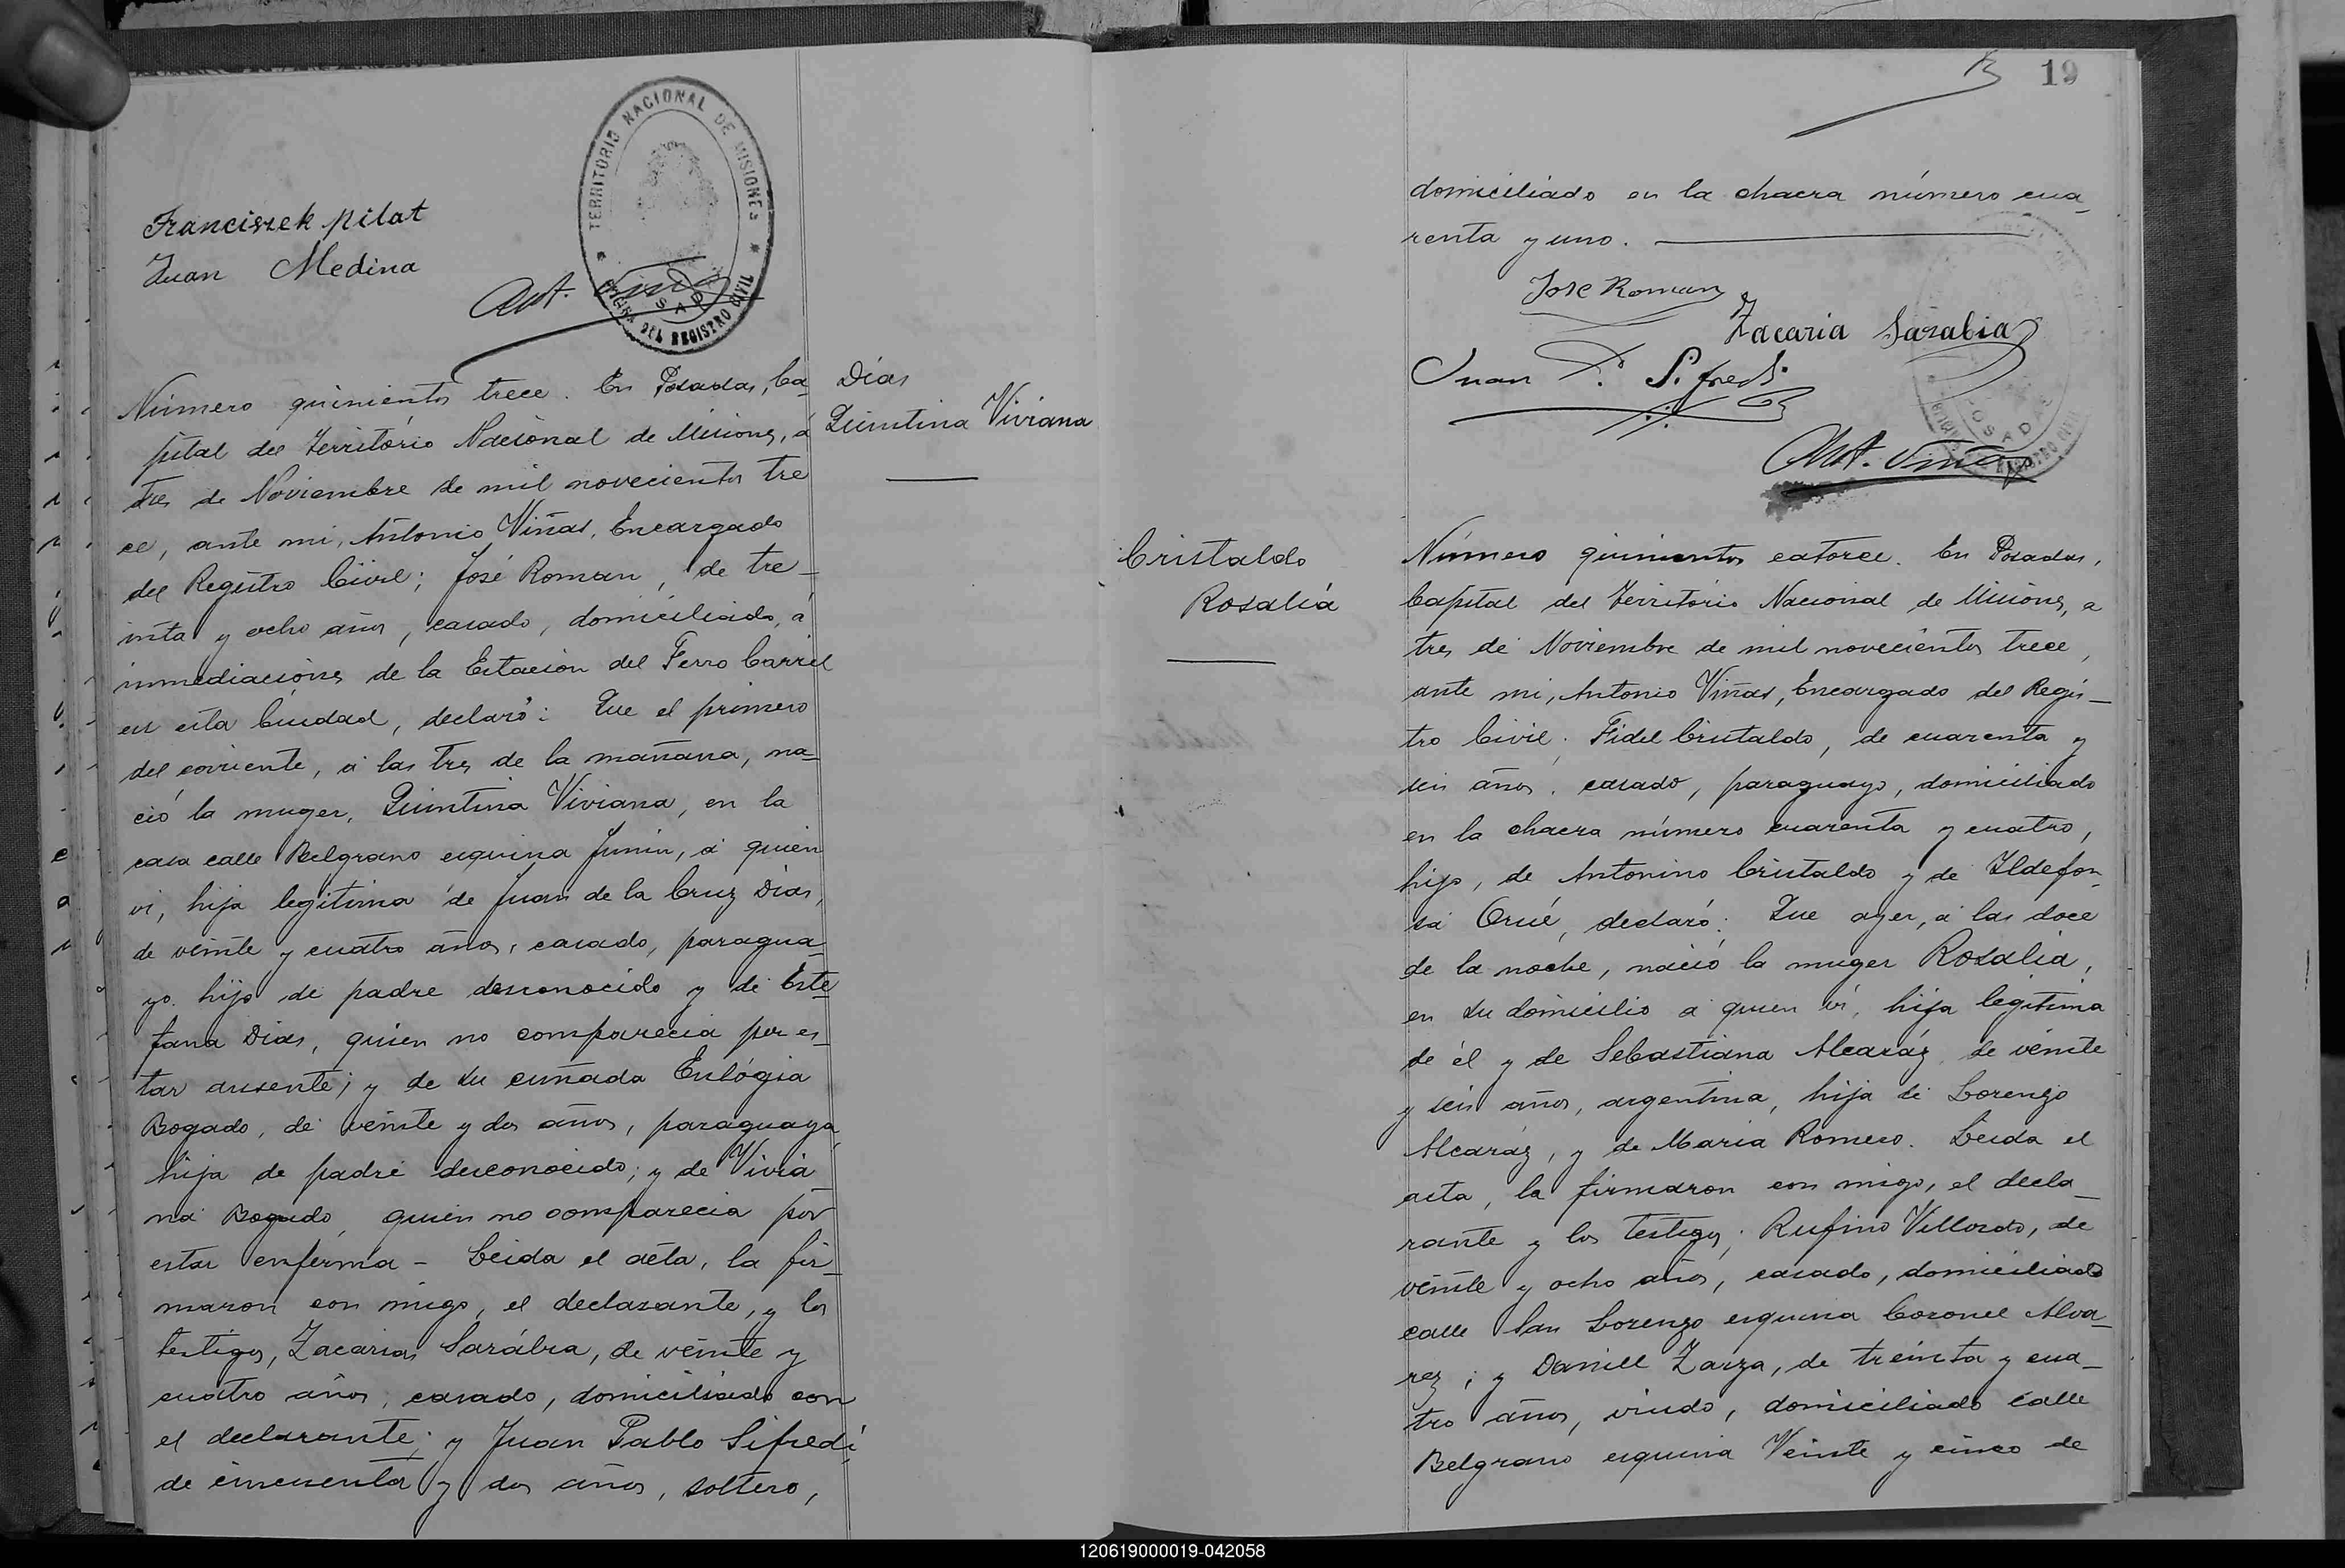 Franciszek Pilat
Juan Medina
TERRITORIO NACIONAL DE MISIONES
OFICINA DEL REGISTRO CIVIL
POSADAS
Ant. Viñas
Días
Quintina Viviana
Número quinientos trece. En Posadas, Ca-
pital del Territorio Nacional de Misiones, á
tres de Noviembre de mil novecientos tre
ce, ante mi, Antonio Viñas, Encargado
del Registro Civil; José Roman, de tre-
inta y ocho años, casado, domiciliado, á
inmediaciones de la Estación del Ferro Carril
en esta Ciudad, declaró: Que el primero
del corriente, á las tres de la mañana, na-
ció la muger, Quintina Viviana, en la
casa calle Belgrano esquina Junin, á quien
vi, hija legitima de Juan de la Cruz Dias,
de veinte y cuatro años, casado, paragua-
yo. hijo de padre desconocido y de Este-
fana Dias, quien no comparecia por es-
tar ausente; y de su cuñada Eulógia
Bogado, de veinte y dos años, paraguaya,
hija de padre desconocido; y de Vivia
na Bogado, quien no comparecia por
estar enferma - Leida el acta, la fir-
maron con migo, el declarante, y los
testigos, Zacarias Sarábia, de veinte y
cuatro años, casado, domiciliado con
el declarante; y Juan Pablo Sifredi,
de cincuenta y dos años, soltero,
19
domiciliado en la chacra número cua-
renta y uno.
Jose Roman
Zacaria Sarabia
Juan P. Sifredi
Ant. Viñas
Cristaldo
Rosalía
Número quinientos catorce. En Posadas,
Capital del Territorio Nacional de Misiones, a
tres de Noviembre de mil novecientos trece,
ante mi, Antonio Viñas, Encargado del Regis-
tro Civil; Fidel Cristaldo, de cuarenta y
seis años, casado, paraguayo, domiciliado
en la chacra número cuarenta y cuatro,
hijo, de Antonino Cristaldo y de Ildefon-
sa Orué, declaró: Que ayer, á las doce
de la noche, nació la muger Rosalia,
en su domicilio a quien vi, hija legitima
de él y de Sebastiana Alcaráz, de veinte
y seis años, argentina, hija de Lorenzo
Alcaráz, y de Maria Romero. Leida el
acta, la firmaron con migo, el decla-
rante y los testigos; Rufino Villordo, de
veinte y ocho años, casado, domiciliado
calle San Lorenzo esquina Coronel Alva-
rez; y Daniel Zarza, de treinta y cua-
tro años, viudo, domiciliado calle
Belgrano esquina Veinte y cinco de
120619000019-042058